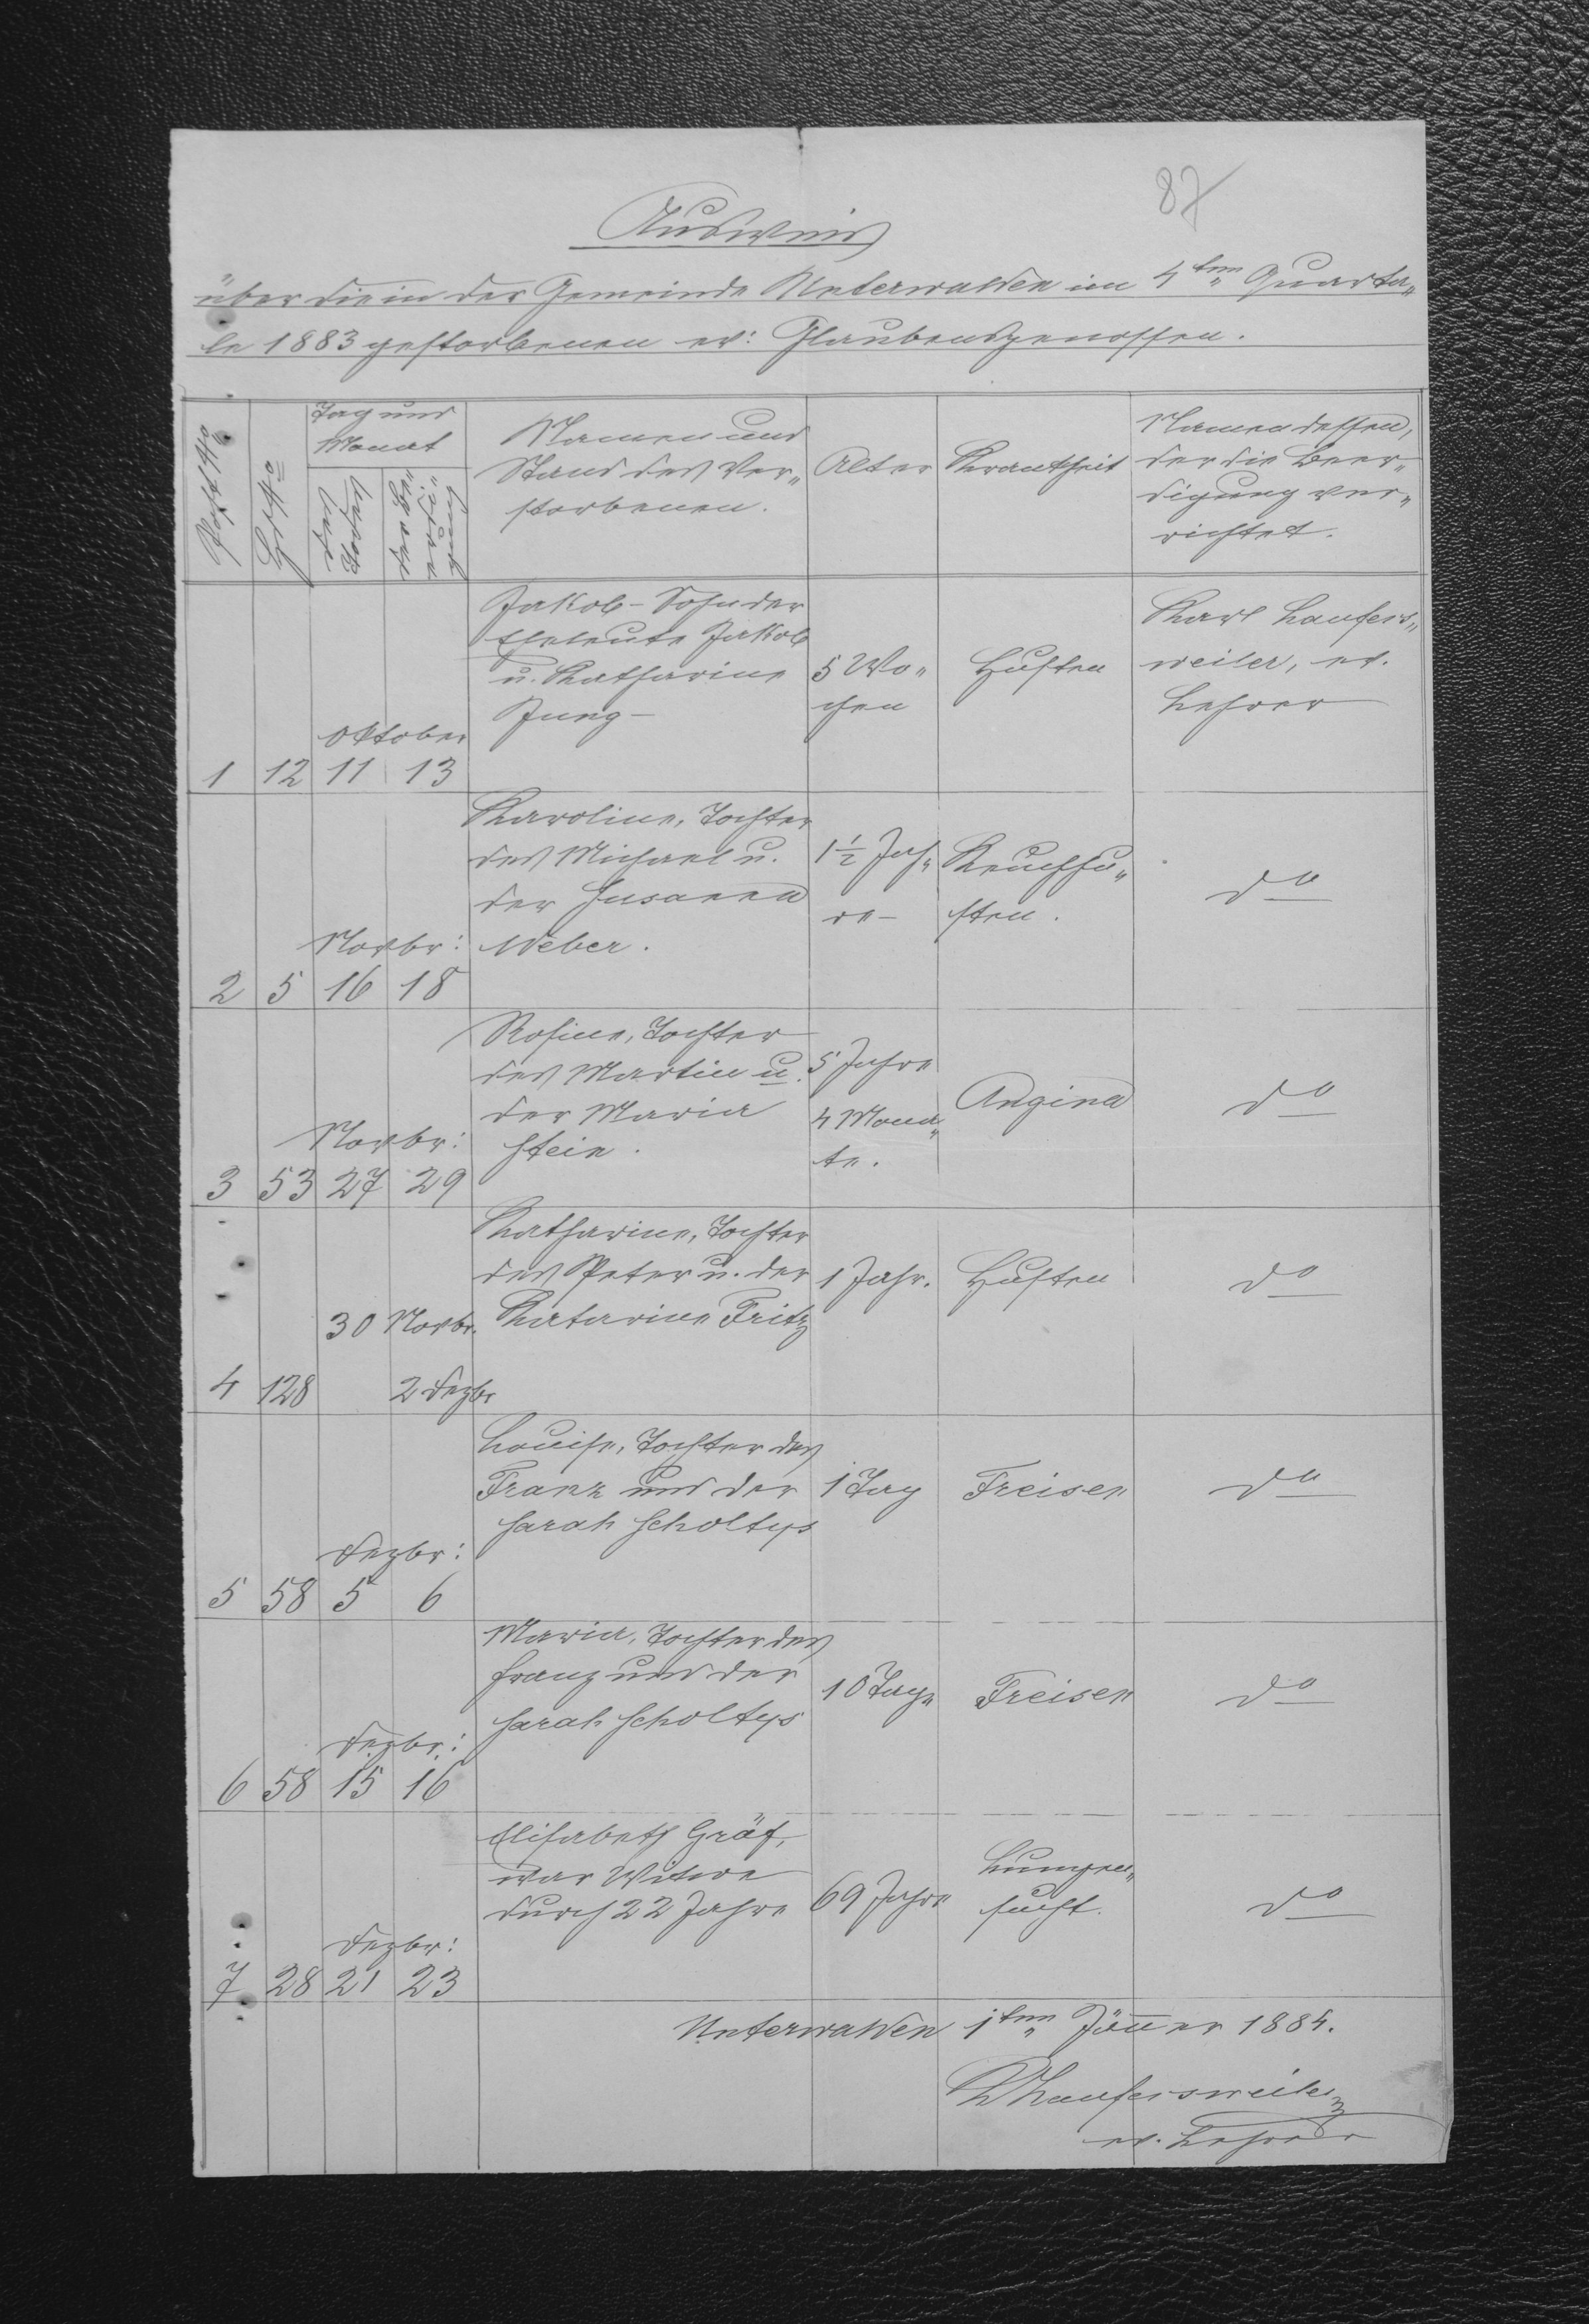 87
Ausweis
über die in der Gemeinde Unterwalden im 4ten Quarta„
le 1883 gestorbenen ev: Glaubensgenossen.
Post No
Hs No
Tag und
Monat
des
Todes
der Be„
erdi„
gung
Namen und
Stand des Ver„
storbenen.
Alter
Krankheit
Namen dessen,
der die Beer„
digung ver„
richtet.
Jakob - Sohn der
Eheleute Jakob
u. Katharina
Jung -
5 Wo„
chen
Husten
Karl Laufers„
weiler, ev.
Lehrer
Oktober
1 12 11 13
Karolina, Tochter
des Michael u.
der Susanna
Weber.
1 1/2 Jah„
re -
Keuchhu„
sten.
do
Novbr:
2 5 16 18
Rosina, Tochter
des Martin u.
der Maria
Stein.
5 Jahre
4 Mona„
te.
Angina
do
Novbr:
3 53 27 29
Katharina, Tochter
des Peter u. der
Katarina Fritz
1 Jahr.
Husten
do
30 Novbr.
4 128 2 Dezbr
Louise, Tochter des
Franz und der
Sarah Scholtys
1 Tag
Freisen
do
Dezbr:
5 58 5 6
Maria, Tochter des
Franz und der
Sarah Scholtys
10 Tage
Freisen
do
Dezbr:
6 58 15 16
Elisabeth Gräf,
war Witwe
durch 22 Jahre
69 Jahre
Lungen„
sucht.
do
Dezbr:
7 28 21 23
Unterwalden 1ten Jänner 1884.
KLaufersweiler
ev. Lehrer